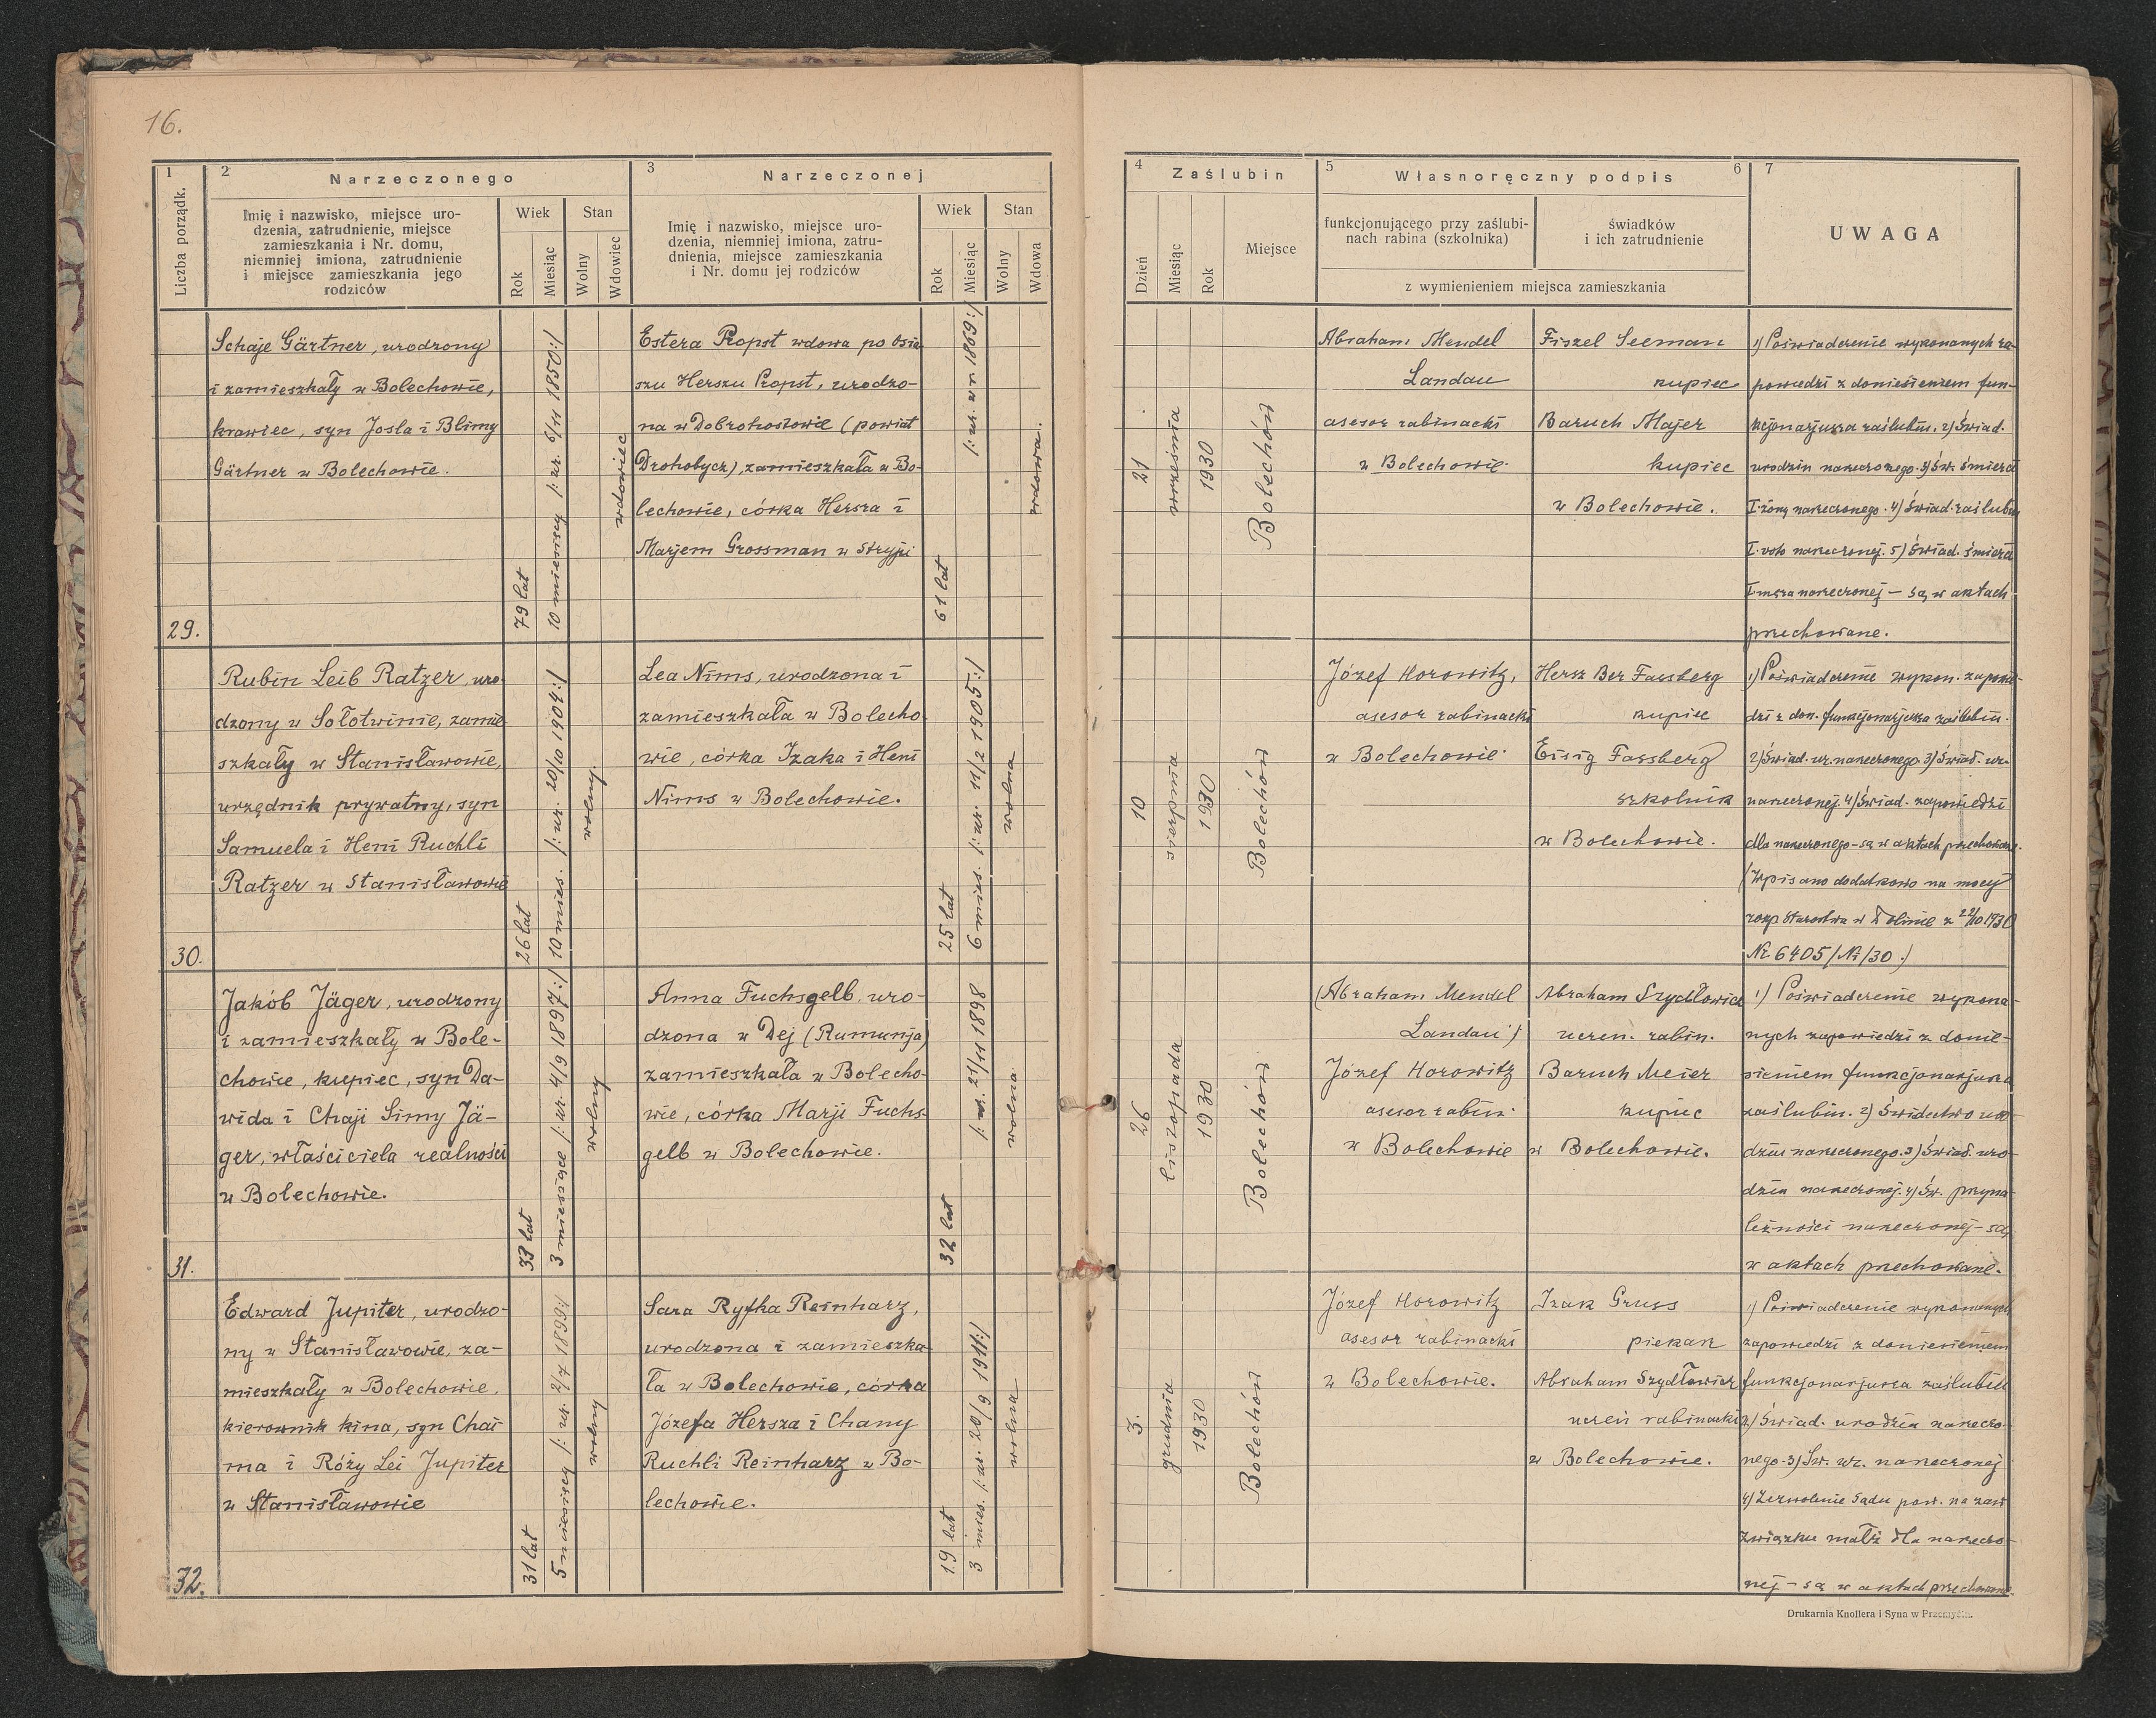 16.
1
2
Narzeczonego
3
Narzeczonej
Liczba porządk.
Imię i nazwisko, miejsce uro-
dzenia, zatrudnienie, miejsce
zamieszkania i Nr. domu,
niemniej imiona, zatrudnienie
i miejsce zamieszkania jego
rodziców
Wiek
Stan
Rok
Miesiąc
Wolny
Wdowiec
Imię i nazwisko, miejsce uro-
dzenia, niemniej imiona, zatru-
dnienia, miejsce zamieszkania
i Nr. domu jej rodziców
Wiek
Stan
Rok
Miesiąc
Wolny
Wdowa
4
Zaślubin
5
Własnoręczny podpis
6
7
Dzień
Miesiąc
Rok
Miejsce
funkcjonującego przy zaślubi-
nach rabina (szkolnika)
świadków
i ich zatrudnienie
z wymienieniem miejsca zamieszkania
UWAGA
29.
Schaje Gärtner, urodzony
i zamieszkały w Bolechowie,
krawiec, syn Josla i Blimy
Gärtner w Bolechowie.
79 lat
10 miesięcy /: ur. 6/11 1850:/
wdowiec
Estera Propst wdowa po Osia
szu Herszu Propst, urodzo-
na w Dobrohostowie (powiat
Drohobycz), zamieszkała w Bo-
lechowie, córka Hersza i
Marjem Grossman w Stryju
61 lat
/: ur. w r. 1869:/
wdowa.
21
września
1930
Bolechów
Abraham Mendel
Landau
asesor rabinacki
w Bolechowie.
Fiszel Seeman
kupiec
Baruch Majer
kupiec
w Bolechowie.
1) Poświadczenie wykonanych za-
powiedzi z doniesieniem fun-
kcjonarjusza zaślubin. 2) Świad.
urodzin narzeczonego. 3) Św. śmierci
I. żony narzeczonego. 4) Świad. zaślubin
I. voto narzeczonej. 5) Świad. śmierci
I męża narzeczonej - są w aktach
przechowane.
30.
Rubin Leib Ratzer, uro
dzony w Sołotwinie, zamie
szkały w Stanisławowie,
urzędnik prywatny, syn
Samuela i Heni Ruchli
Ratzer w Stanisławowie
26 lat
10 mies. /: ur. 20/10 1904:/
wolny.
Lea Nims, urodzona i
zamieszkała w Bolecho
wie, córka Izaka i Heni
Nims w Bolechowie.
25 lat
6 mies. /: ur. 11/2 1905:/
wolna
10
sierpnia
1930
Bolechów
Józef Horowitz,
asesor rabinacki
w Bolechowie.
Hersz Ber Fassberg
kupiec
Eisig Fassberg
szkolnik
w Bolechowie.
1) Poświadczenie wykon. zapowie-
dzi z don. funkcjonarjusza zaślubin.
2) Świad. ur. narzeczonego. 3) Świad. ur.
narzeczonej. 4) Świad. zapowiedzi
dla narzeczonego - są w aktach przechowane.
(Wpisano dodatkowo na mocy
rozp Starostwa w Dolinie z 22/10 1930
Nr 6405/Ni/30.)
31.
Jakób Jäger, urodzony
i zamieszkały w Bole-
chowie, kupiec, syn Da-
wida i Chaji Simy Jä-
ger, właściciela realności
w Bolechowie.
33 lat
3 miesiące /: ur. 4/9 1897:/
wolny
Anna Fuchsgelb, uro-
dzona w Dej (Rumunja)
zamieszkała w Bolecho-
wie, córka Marji Fuchs-
gelb w Bolechowie.
32 lat
/: ur. 21/11 1898
wolna
26
listopada
1930
Bolechów
(Abraham Mendel
Landau)
Józef Horowitz
asesor rabin.
w Bolechowie
Abraham Szydłowicz
uczeń. rabin.
Baruch Meier
kupiec
w Bolechowie.
1) Poświadczenie wykona-
nych zapowiedzi z donie-
sieniem funkcjonarjusza
zaślubin. 2) Świdectwo uro
dzin narzeczonego. 3) Świad. uro-
dzin narzeczonej. 4) Św. przyna-
leżności narzeczonej - są
w aktach przechowane.
32.
Edward Jupiter, urodzo-
ny w Stanisławowie, za-
mieszkały w Bolechowie,
kierownik kina, syn Chai
ma i Róży Lei Jupiter
w Stanisławowie
31 lat
5 miesięcy /: ur. 2/7 1899:/
wolny
Sara Ryfka Reinharz,
urodzona i zamieszka-
ła w Bolechowie, córka
Józefa Hersza i Chany
Ruchli Reinharz w Bo-
lechowie.
19 lat
3 mies. /: ur. 20/9 1911:/
wolna
3.
grudnia
1930
Bolechów
Józef Horowitz
asesor rabinacki
w Bolechowie.
Izak Gruss
piekarz
Abraham Szydłowicz
uczeń rabinacki
w Bolechowie.
1) Poświadczenie wykonanych
zapowiedzi z doniesieniem
funkcjonarjusza zaślubin
2) Świad. urodzin narzeczo-
nego. 3) Św. ur. narzeczonej
4) Zezwolenie Sądu pow. na zaw
związku małż dla narzeczo-
nej - są w aktach przechowane.
Drukarnia Knollera i Syna w Przemyślu.